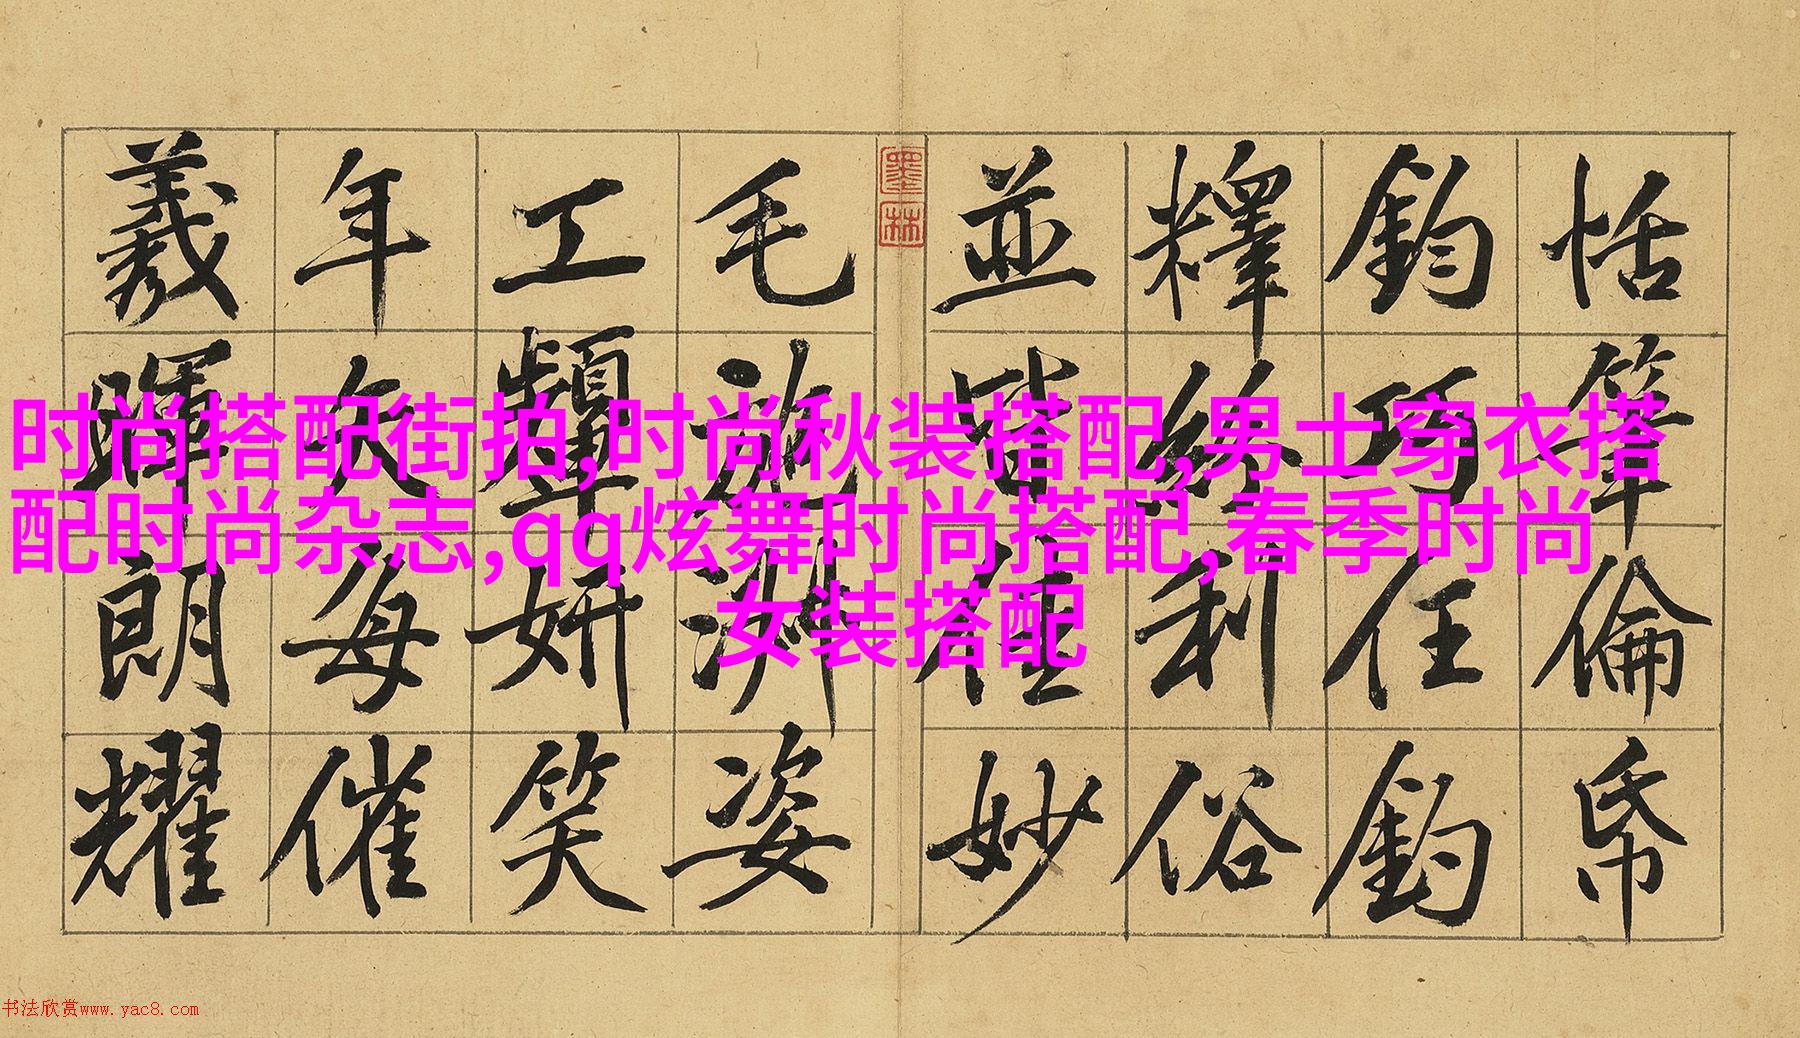 恬筆倫帋
鈞巧任釣
釋紛利俗
並皆佳妙
墨林
毛施淑姿
工顰妍笑
年矢每催
羲暉朗耀
时尚搭配街拍,时尚秋装搭配,男士穿衣搭
配时尚杂志,qq炫舞时尚搭配,春季时尚
女装搭配
书法欣赏www.yac8.com